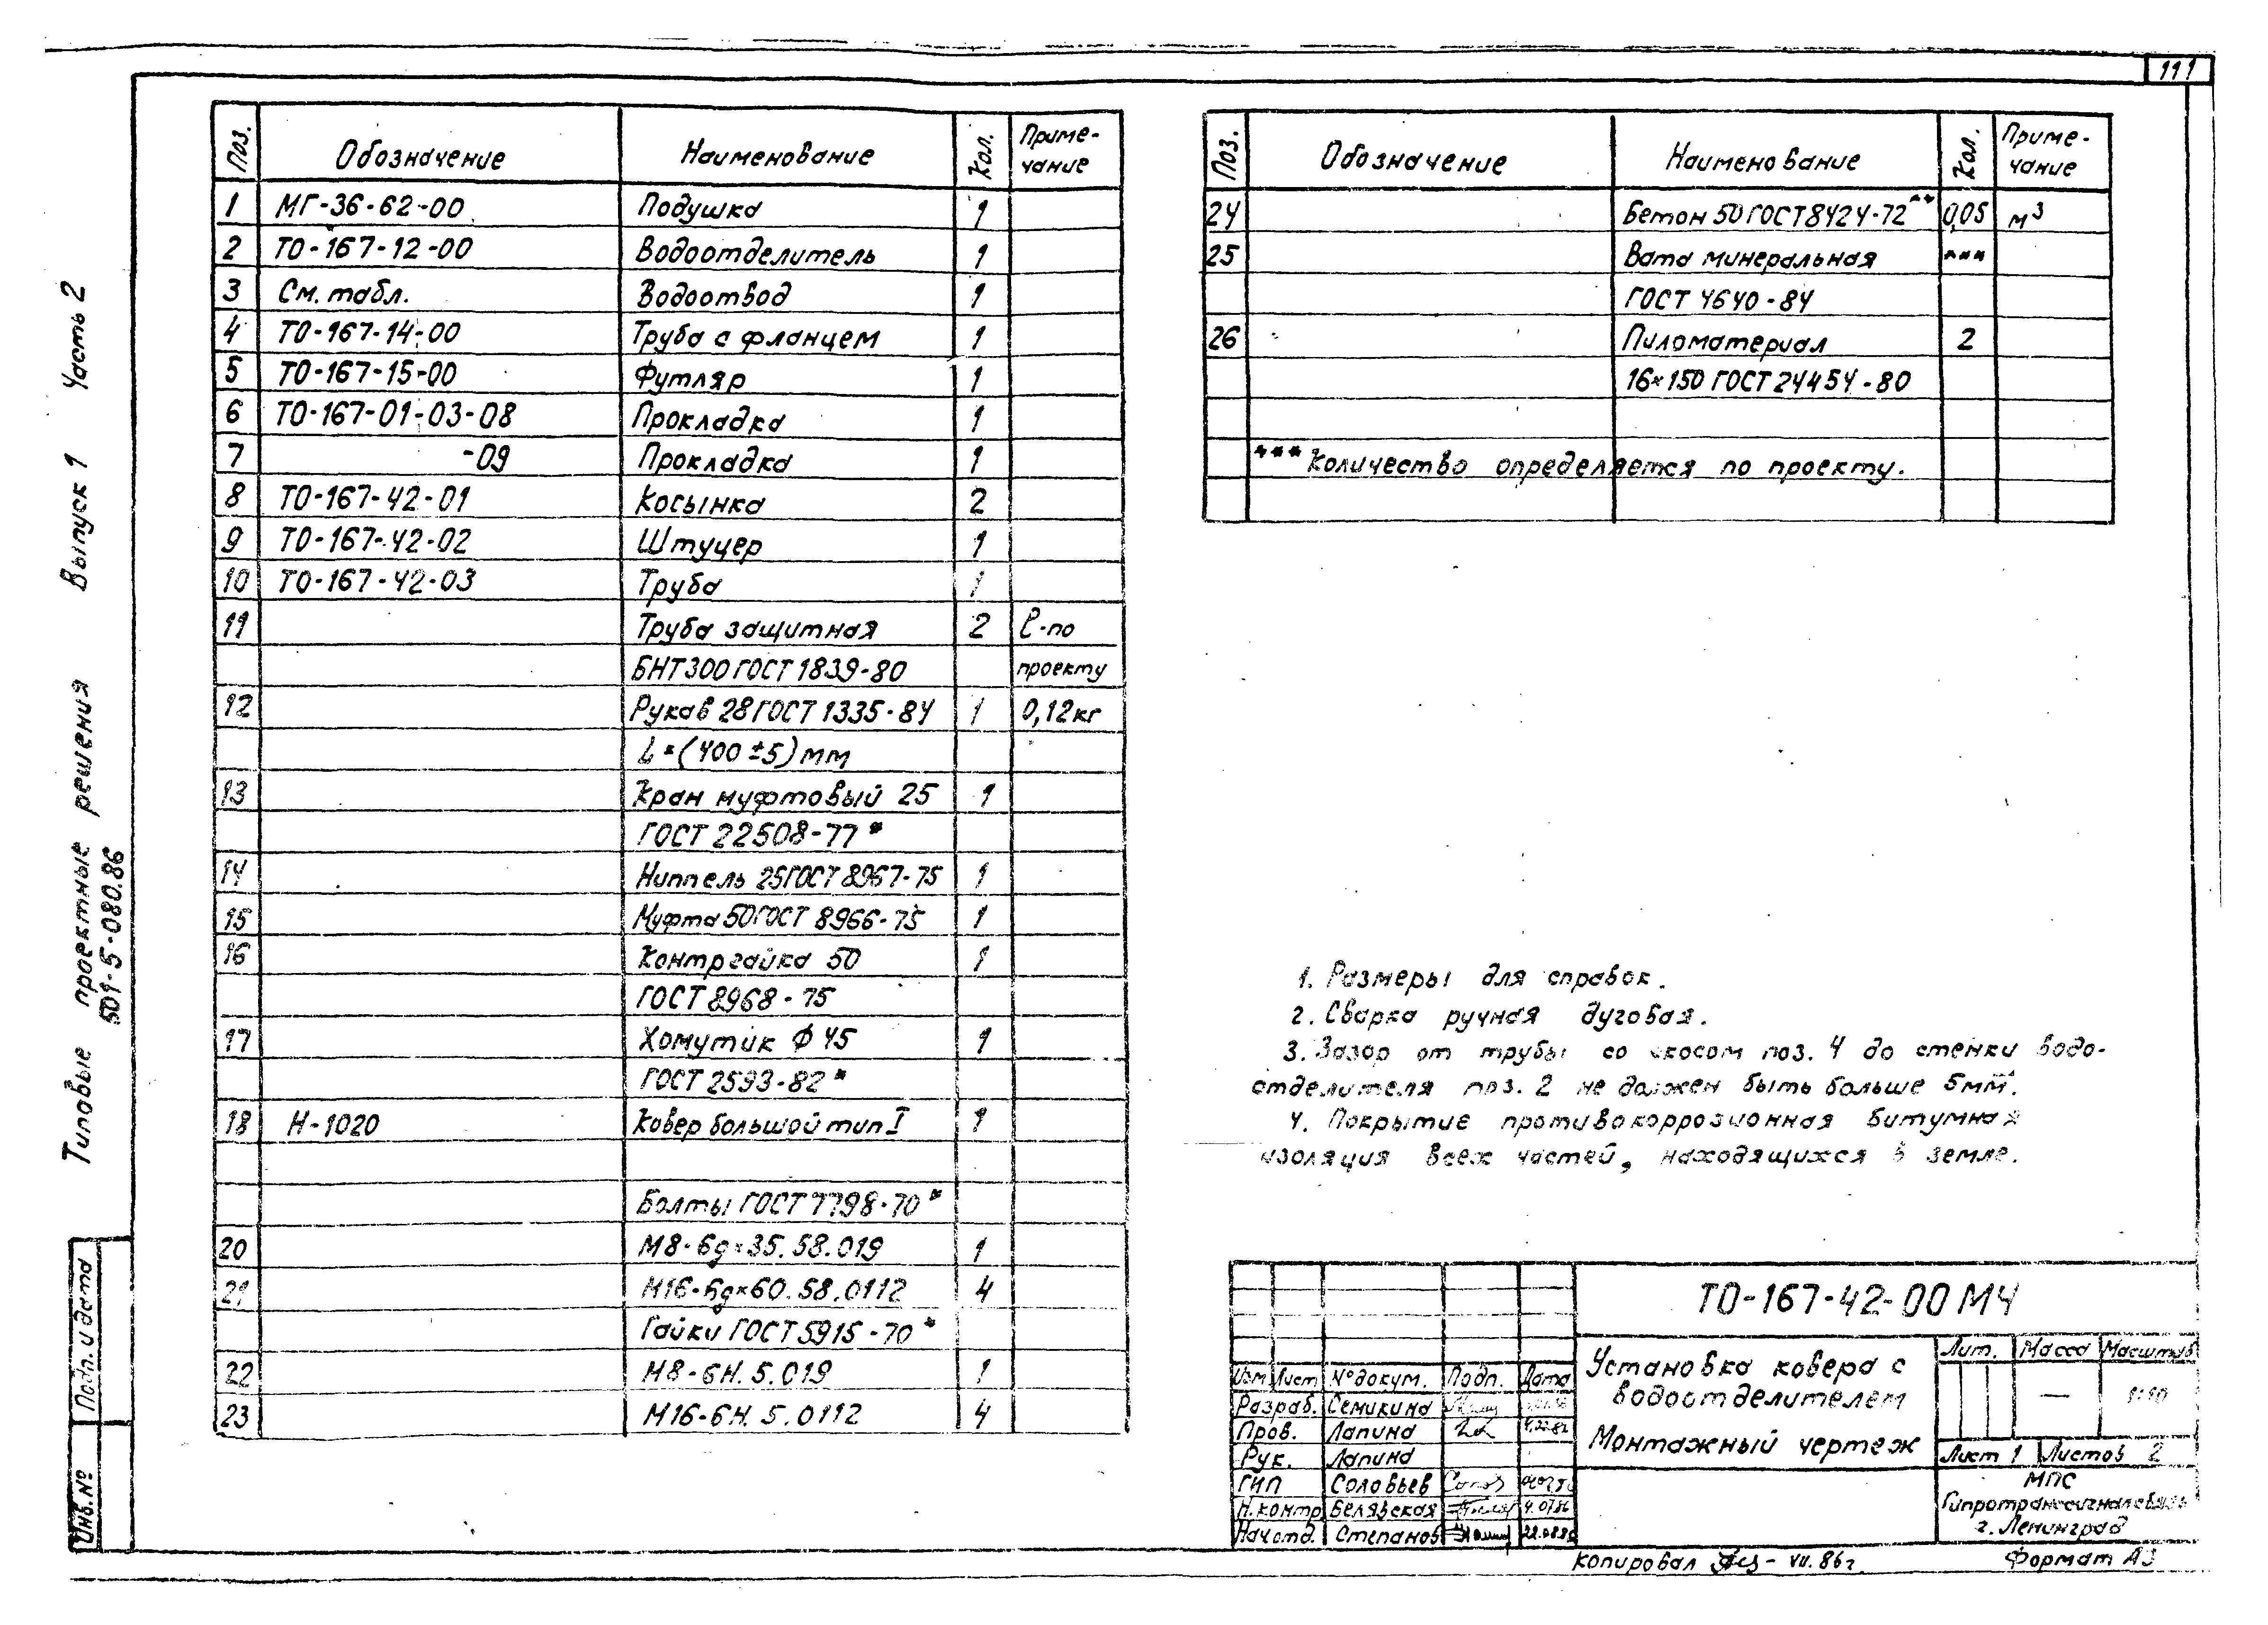 111
Типовые проектные решения Выпуск 1 Часть 2
501-5-080.86
Подп. и дата
Инв.№
Поз. Обозначение Наименование Кол. Приме-
чание
1 МГ-36-62-00 Подушка 1
2 ТО-167-12-00 Водоотделитель 1
3 См. табл. Водоотвод 1
4 ТО-167-14-00 Труба с фланцем 1
5 ТО-167-15-00 Футляр 1
6 ТО-167-01-03-08 Прокладка 1
7 -09 Прокладка 1
8 ТО-167-42-01 Косынка 2
9 ТО-167-42-02 Штуцер 1
10 ТО-167-42-03 Труба 1
11 Труба защитная 2 ℓ-по
БНТ300 ГОСТ 1839-80 проекту
12 Рукав 28 ГОСТ 1335-84 1 0,12кг
L=(400±5)мм
13 Кран муфтовый 25 1
ГОСТ 22508-77*
14 Ниппель 25 ГОСТ 8967-75 1
15 Муфта 50 ГОСТ 8966-75 1
16 Контргайка 50 1
ГОСТ 8968-75
17 Хомутик Ф 45 1
ГОСТ 2593-82*
18 Н-1020 Ковер большой тип I 1
Болты ГОСТ 7798-70*
20 М8-6g×35.58.019 1
21 М16-6g×60.58.0112 4
Гайки ГОСТ 5915-70*
22 М8-6Н.5.019 1
23 М16-6Н.5.0112 4
Поз. Обозначение Наименование Кол. Приме-
чание
24 Бетон 50 ГОСТ 8424-72** 0,05 м³
25 Вата минеральная ***
ГОСТ 4640-84
26 Пиломатериал 2
16×150 ГОСТ 24454-80
*** Количество определяется по проекту.
1. Размеры для справок.
2. Сварка ручная дуговая.
3. Зазор от трубы со скосом поз. 4 до стенки водо-
отделителя поз. 2 не должен быть больше 5мм.
4. Покрытие противокоррозионная битумная
изоляция всех частей, находящихся в земле.
ТО-167-42-00 МЧ
Установка ковера с
водоотделителем
Монтажный чертеж
Лит. Масса Масштаб
— 1:10
Лист 1 Листов 2
МПС
Гипротранссигналсвязь
г. Ленинград
Изм Лист №докум. Подп. Дата
Разраб. Семикина
Пров. Лапина
Рук. Лапина
ГИП Соловьев
Н.контр Белявская
Нач.отд. Степанов
Копировал VII.86г.
Формат А3